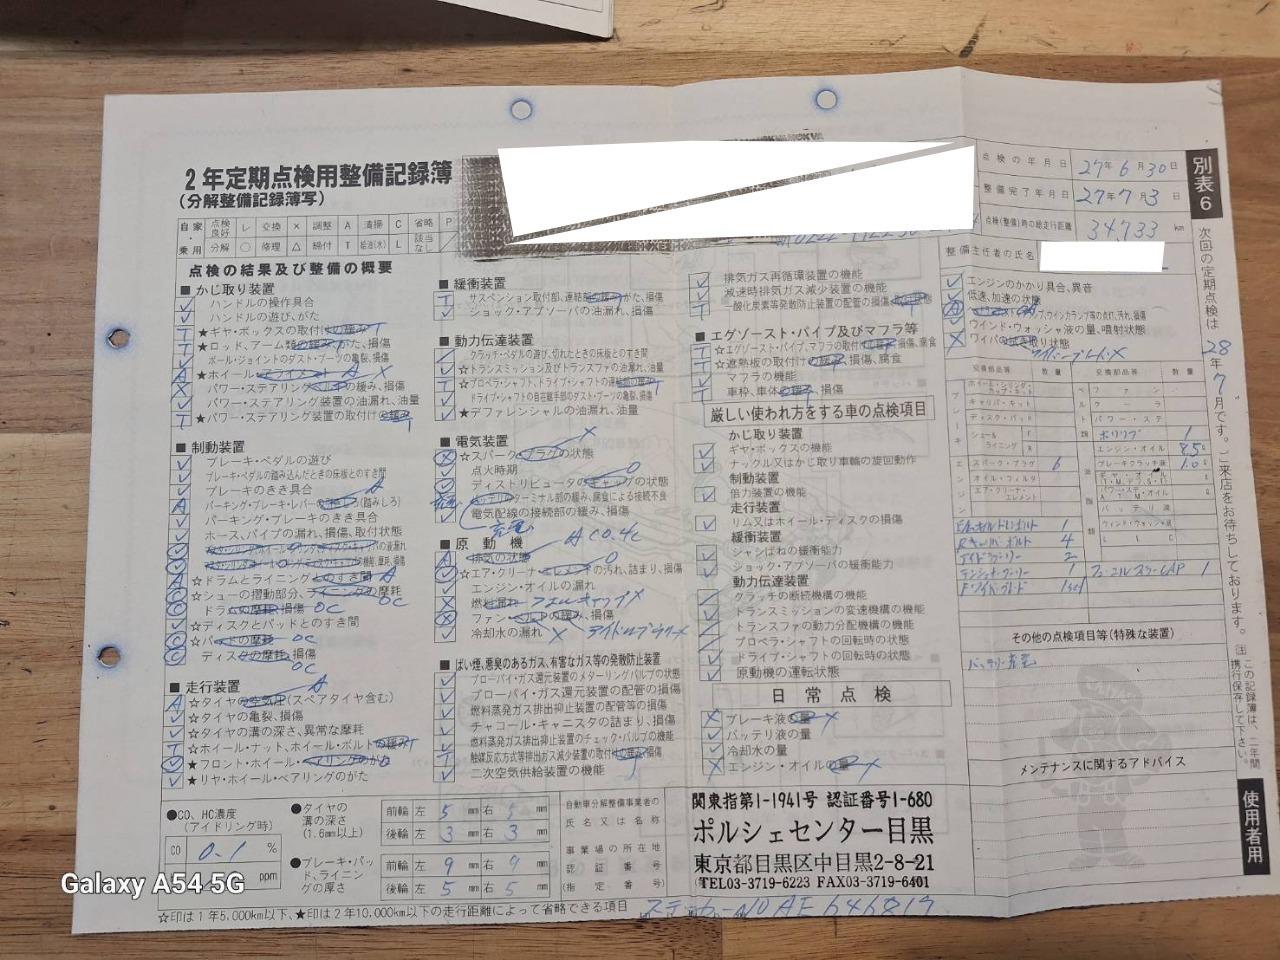 2年定期点検用整備記録簿
(分解整備記録簿写)
自家 点検良好 レ 交換 × 調整 A 清掃 C 省略 P
乗用 分解 ○ 修理 △ 締付 T 給油(水) L 該当なし ／
点検の年月日 27年6月30日
整備完了年月日 27年7月3日
点検(整備)時の総走行距離 34,733 km
整備主任者の氏名
別表6
次回の定期点検は
28年7月です。ご来店をお待ちしております。
注 この記録簿は、二年間携行保存して下さい。
使用者用
点検の結果及び整備の概要
■かじ取り装置
ハンドルの操作具合
ハンドルの遊び、がた
★ギヤ・ボックスの取付けの緩み T
★ロッド、アーム類の緩み、がた、損傷
ボール・ジョイントのダスト・ブーツの亀裂、損傷
★ホイール・アライメント A
パワー・ステアリング ベルトの緩み、損傷
パワー・ステアリング装置の油漏れ、油量
★パワー・ステアリング装置の取付けの緩み
■制動装置
ブレーキ・ペダルの遊び
ブレーキ・ペダルの踏み込んだときの床板とのすき間
ブレーキのきき具合
パーキング・ブレーキ・レバーの引きしろ(踏みしろ)
パーキング・ブレーキのきき具合
ホース、パイプの漏れ、損傷、取付状態
☆ドラムとライニングとのすき間 A
☆シューの摺動部分、ライニングの摩耗
ドラムの摩耗、損傷 OC
☆ディスクとパッドとのすき間
☆パッドの摩耗 OC
ディスクの摩耗、損傷
OC
■走行装置
☆タイヤの空気圧(スペアタイヤ含む)
☆タイヤの亀裂、損傷
☆タイヤの溝の深さ、異常な摩耗
☆ホイール・ナット、ホイール・ボルトの緩み
★フロント・ホイール・ベアリングのがた
★リヤ・ホイール・ベアリングのがた
■緩衝装置
サスペンション取付部、連結部の緩み、がた、損傷
ショック・アブソーバの油漏れ、損傷
■動力伝達装置
クラッチ・ペダルの遊び、切れたときの床板とのすき間
☆トランスミッション及びトランスファの油漏れ、油量
☆プロペラ・シャフト、ドライブ・シャフトの連結部の緩み
ドライブ・シャフトの自在継手部のダスト・ブーツの亀裂、損傷
★デファレンシャルの油漏れ、油量
■電気装置
☆スパーク・プラグの状態
点火時期
ディストリビュータのキャップの状態
バッテリのターミナル部の緩み、腐食による接続不良
電気配線の接続部の緩み、損傷
充電
■原動機
排気の状態
☆エア・クリーナ・エレメントの汚れ、詰まり、損傷
エンジン・オイルの漏れ
燃料漏れ フュエルキャップ×
ファン・ベルトの緩み、損傷
冷却水の漏れ × アイドルプーリー×
■ばい煙、悪臭のあるガス、有害なガス等の発散防止装置
ブローバイ・ガス還元装置のメターリング・バルブの状態
ブローバイ・ガス還元装置の配管の損傷
燃料蒸発ガス排出抑止装置の配管等の損傷
チャコール・キャニスタの詰まり、損傷
燃料蒸発ガス排出抑止装置のチェック・バルブの機能
触媒反応方式等排出ガス減少装置の取付けの緩み、損傷
二次空気供給装置の機能
排気ガス再循環装置の機能
減速時排気ガス減少装置の機能
一酸化炭素等発散防止装置の配管の損傷、取付状態
■エグゾースト・パイプ及びマフラ等
☆エグゾースト・パイプ、マフラの取付けの緩み、損傷、腐食
☆遮熱板の取付けの緩み、損傷、腐食
マフラの機能
車枠、車体の緩み、損傷
厳しい使われ方をする車の点検項目
かじ取り装置
ギヤ・ボックスの機能
ナックル又はかじ取り車輪の旋回動作
制動装置
倍力装置の機能
走行装置
リム又はホイール・ディスクの損傷
緩衝装置
シャシばねの緩衝能力
ショック・アブソーバの緩衝能力
動力伝達装置
クラッチの断続機構の機能
トランスミッションの変速機構の機能
トランスファの動力分配機構の機能
プロペラ・シャフトの回転時の状態
ドライブ・シャフトの回転時の状態
原動機の運転状態
日常点検
ブレーキ液の量 ×
バッテリ液の量
冷却水の量
エンジン・オイルの量 ×
エンジンのかかり具合、異音
低速、加速の状態
ウインド・ウォッシャ液の量、噴射状態
ワイパの拭き取り状態
ワイパーブレード×
交換部品等 数量 交換部品等 数量
スパーク・プラグ 6
オイル・フィルタ
エア・クリーナ・エレメント
エンジン・オイル 8.5
ブレーキクラッチ液 1.0
バッテリ液
L L C
Rキャリパーボルト 4
アイドラプーリー 2
テンショナープーリー 1
フューエルフィラーCAP 1
F.ワイパーブレード 1set
その他の点検項目等(特殊な装置)
バッテリー充電
メンテナンスに関するアドバイス
●CO、HC濃度
(アイドリング時)
CO 0.1 %
ppm
●タイヤの溝の深さ
(1.6mm以上)
前輪 左 5 mm 右 5 mm
後輪 左 3 mm 右 3 mm
●ブレーキ・パッド、ライニングの厚さ
前輪 左 9 mm 右 9 mm
後輪 左 5 mm 右 5 mm
自動車分解整備事業者の氏名又は名称
事業場の所在地
認証番号
(指定番号)
関東指第1-1941号 認証番号1-680
ポルシェセンター目黒
東京都目黒区中目黒2-8-21
TEL03-3719-6223 FAX03-3719-6401
☆印は1年5,000km以下、★印は2年10,000km以下の走行距離によって省略できる項目
Galaxy A54 5G